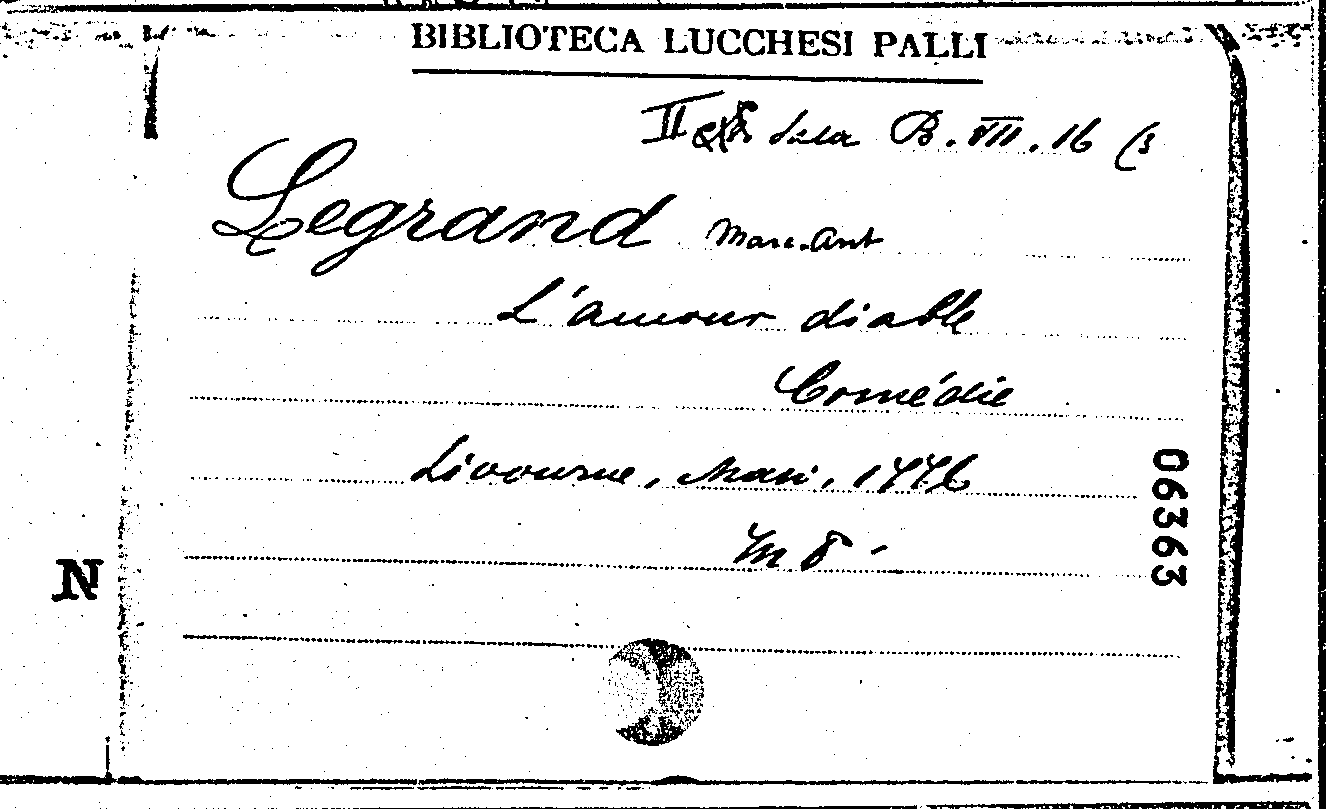 BIBLIOTECA LUCCHESI PALLI
II Sala B. VII. 16 (3
Legrand Marc. Ant
L'amour diable
Comédie
Livourne, Masi, 1776
in 8 -
06363
N